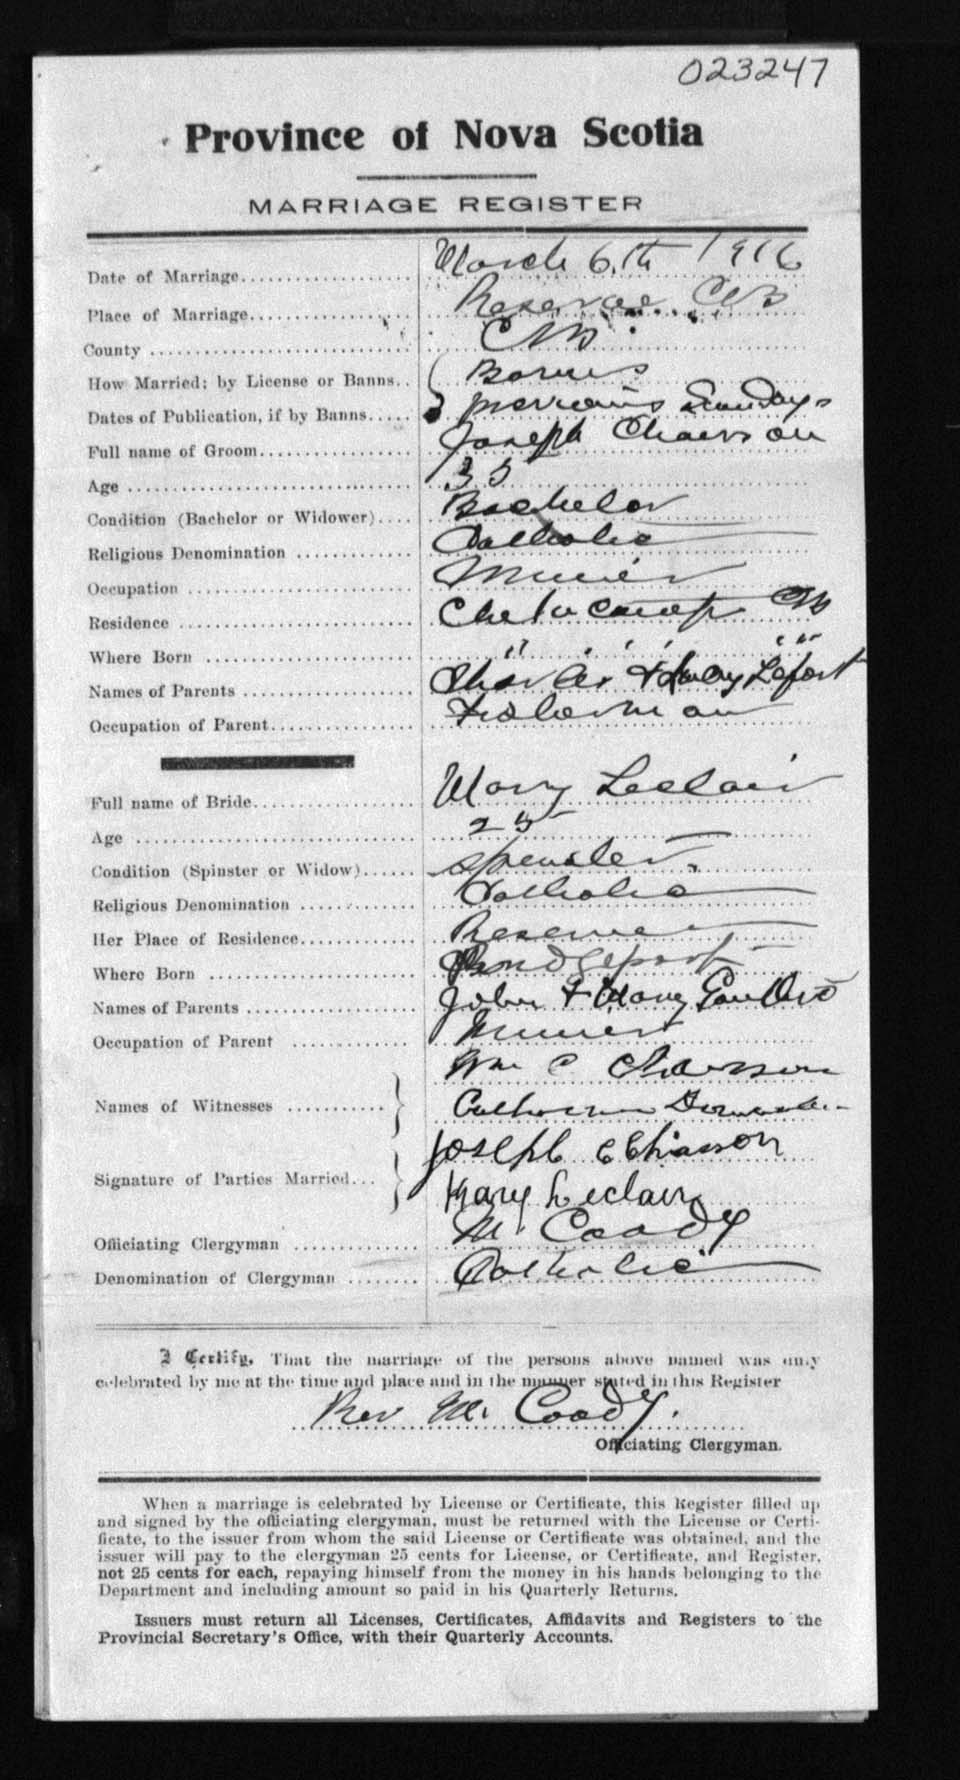 023247
Province of Nova Scotia
MARRIAGE REGISTER
Date of Marriage March 6th 1916
Place of Marriage Reserve CB
County CB
How Married: by License or Banns Banns
Dates of Publication, if by Banns 3 previous Sundays
Full name of Groom Joseph Chaisson
Age 35
Condition (Bachelor or Widower) Bachelor
Religious Denomination Catholic
Occupation Miner
Residence Cheticamp CB
Where Born " " "
Names of Parents Charles & Lefort
Occupation of Parent Fisherman
Full name of Bride Mary Leclair
Age 25
Condition (Spinster or Widow) Spinster
Religious Denomination Catholic
Her Place of Residence Reserve
Where Born Bridgeport
Names of Parents John & Mary
Occupation of Parent Miner
Wm C Chaisson
Names of Witnesses
Catherine
Joseph C Chiasson
Signature of Parties Married
Mary Leclair
Officiating Clergyman M. Coady
Denomination of Clergyman Catholic
I Certify, That the marriage of the persons above named was duly
celebrated by me at the time and place and in the manner stated in this Register
Rev M. Coady.
Officiating Clergyman.
When a marriage is celebrated by License or Certificate, this Register filled up
and signed by the officiating clergyman, must be returned with the License or Certi-
ficate, to the issuer from whom the said License or Certificate was obtained, and the
issuer will pay to the clergyman 25 cents for License, or Certificate, and Register,
not 25 cents for each, repaying himself from the money in his hands belonging to the
Department and including amount so paid in his Quarterly Returns.
Issuers must return all Licenses, Certificates, Affidavits and Registers to the
Provincial Secretary's Office, with their Quarterly Accounts.